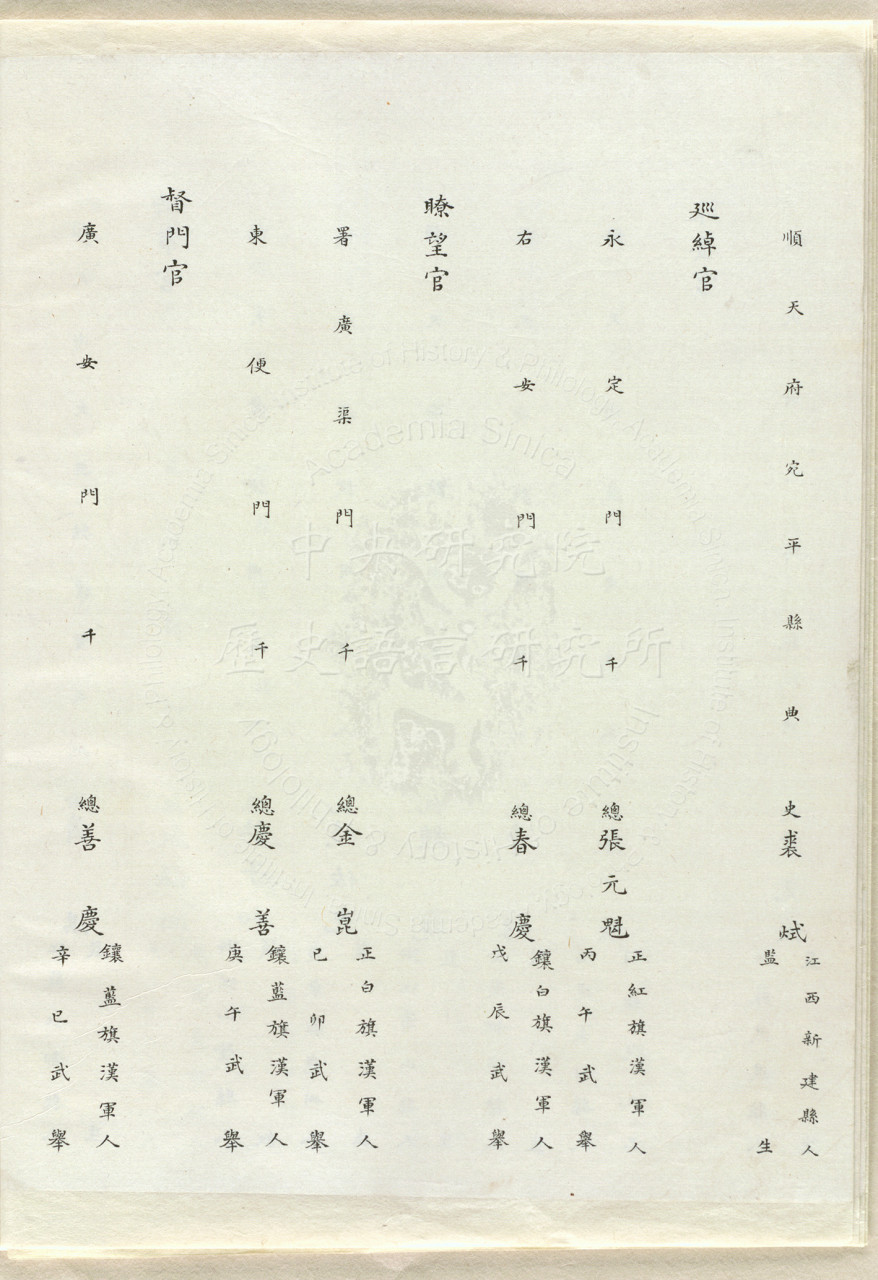 順天府宛平縣典史裘烒
江西新建縣人
監生
廵綽官
永定門千總張元魁
正紅旗漢軍人
丙午武舉
右安門千總春慶
鑲白旗漢軍人
戊辰武舉
瞭望官
署廣渠門千總金崑
正白旗漢軍人
己卯武舉
東便門千總慶善
鑲藍旗漢軍人
庚午武舉
督門官
廣安門千總善慶
鑲藍旗漢軍人
辛巳武舉
中央研究院
歷史語言研究所
Academia Sinica
Institute of History & Philology